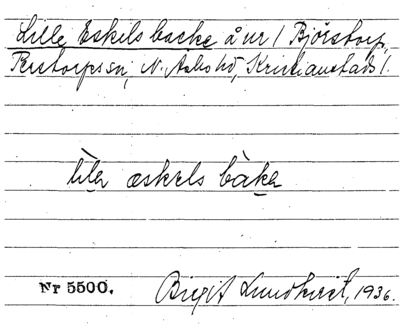 Lille Eskils backe å nr 1 Björstorp,
Perstorps sn, N. Åsbo hd, Kristianstads l.
lìla æskɛls bàka
Nr 5500.
Birgit Lundkvist, 1936.